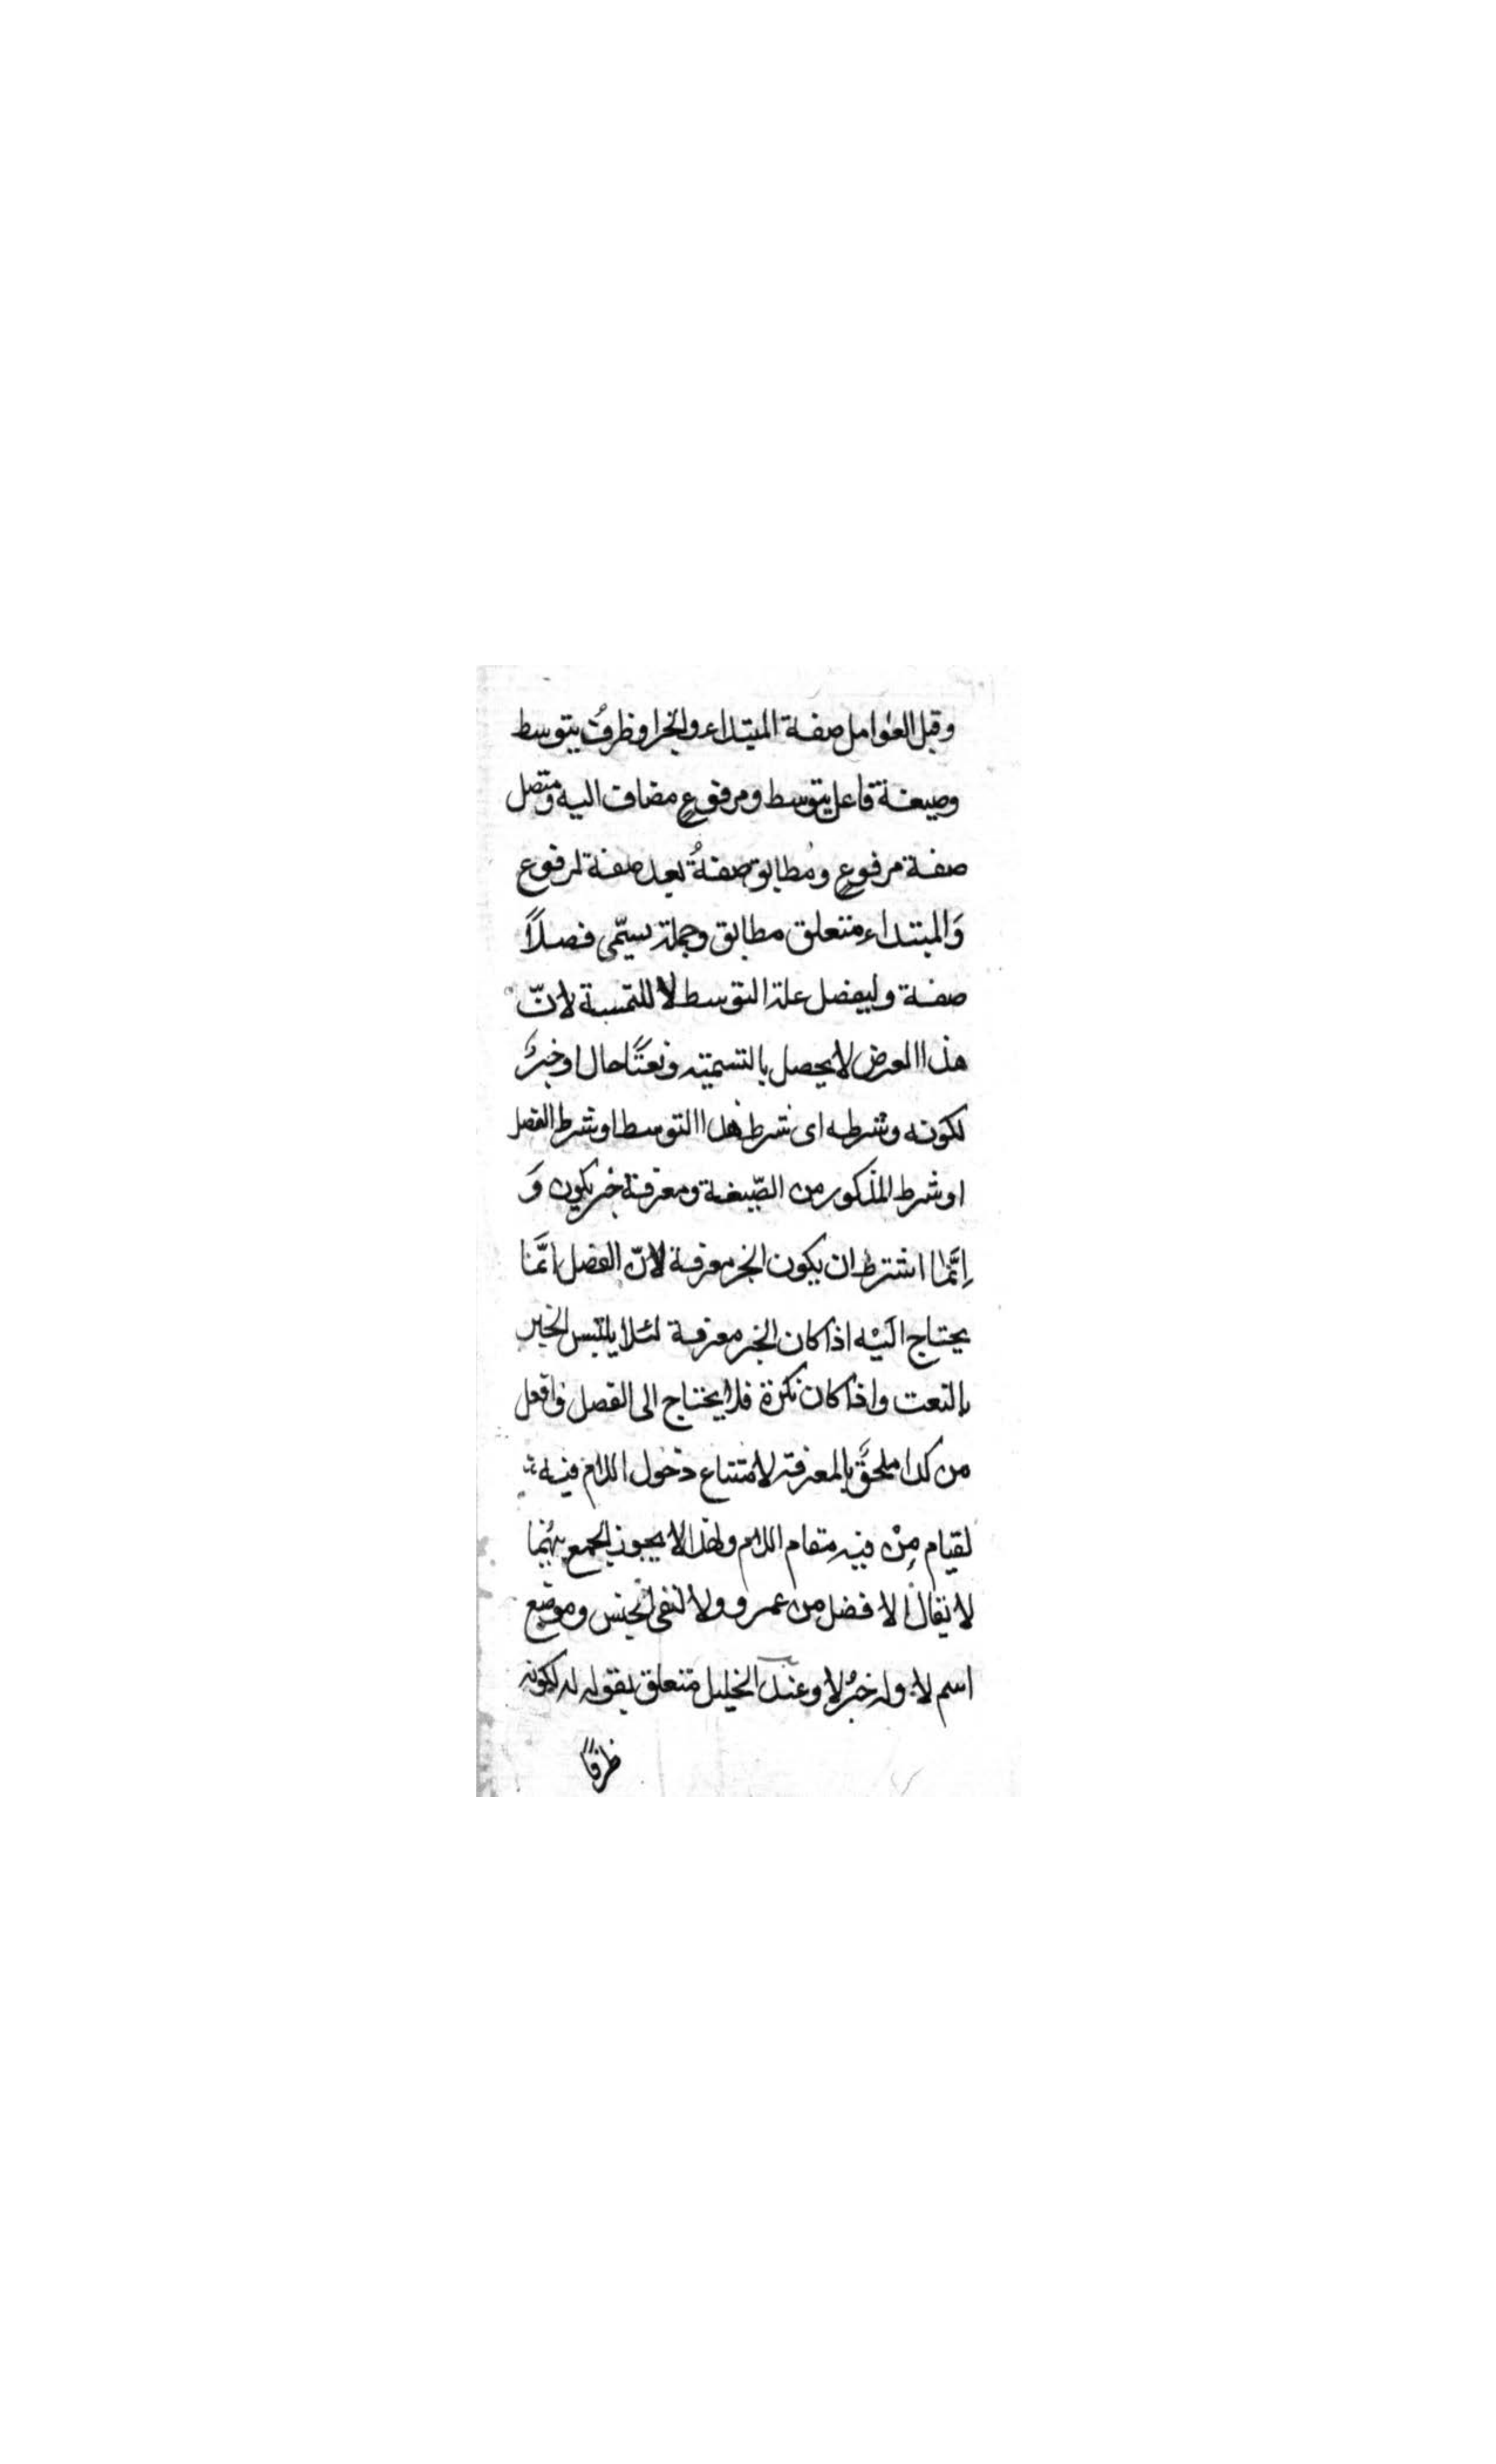 وقبل العوامل صفة المبتداء والخبر او ظرفُ يتوسط
وصيغة فاعل يتوسط ومرفوعٍ مضاف اليه ومتصل
صفة مرفوعٍ ومطابق صفةُ بعد صفة لمرفوع
وَالمبتداء متعلق مطابق وجملة يسمّى فصلاً
صفة وليفصل علة التوسط لا للتسمية لانّ
هذا الغرض لا يحصل بالتسمية ونعتًا حال او خبرُ
لكونه وشرطه اى شرط هذا التوسط او شرط الفصل
او شرط المذكور من الصّيغة ومعرفة خبر يكون وَ
اِنَّما اشترط ان يكون الخبر معرفة لانّ الفصل انَّما
يحتاج الَيْه اذا كان الخبر معرفة لئلا يلتبس الخبر
بالنعت واذا كان نكرة فلا يحتاج الى الفصل وافعل
من كذا ملحَق بالمعرفة لامتناع دخول اللام فيه
لقيام مِنْ فيه مقام اللام ولهذا لا يجوز الجمع بينهما
لا يقال الافضل من عمرو ولا لنفى الجنس وموضع
اسم لا وله خبرُ لا وعند الخليل متعلق بقوله له لكونه
ظرفًا